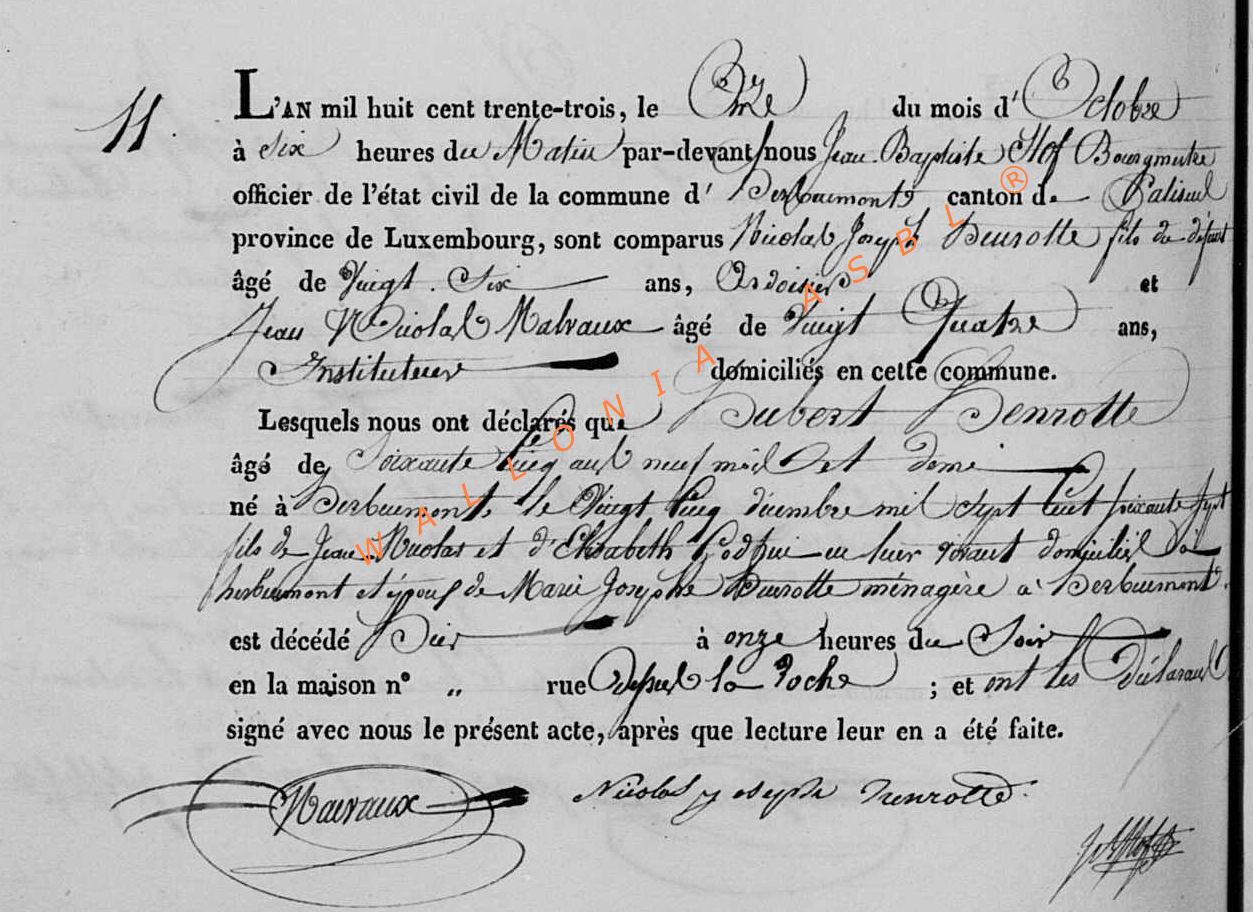 11.
L'AN mil huit cent trente-trois, le Onze du mois d'Octobre
à Six heures du Matin par-devant nous Jean Baptiste Stof Bourgmestre
officier de l'état civil de la commune d'Herbeumont, canton de Paliseul
province de Luxembourg, sont comparus Nicolas Joseph Henrotte fils du défunt
âgé de Vingt Six ans, Ardoisier et
Jean Nicolas Malvaux âgé de Vingt Quatre ans,
Instituteur domiciliés en cette commune.
Lesquels nous ont déclarés que Hubert Henrotte
âgé de Soixante Cinq ans neuf mois et demi
né à Herbeumont, le Vingt Cinq décembre mil Sept Cent soixante sept
fils de Jean Nicolas et d'Elisabeth en leur vivant domiciliés à
herbeumont et époux de Marie Josephe Henrotte ménagère à Herbeumont.
est décédé Hier à onze heures du Soir
en la maison n° „ rue dessus la Roche ; et ont les Déclarans
signé avec nous le présent acte, après que lecture leur en a été faite.
Malvaux Nicolas joseph henrotte.
WALLONIA ASBL ®